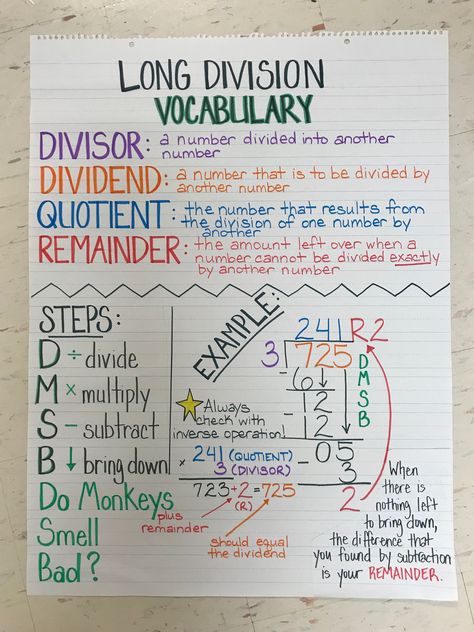 LONG DIVISION
VOCABULARY
DIVISOR: a number divided into another
number
DIVIDEND: a number that is to be divided by
another number
QUOTIENT: the number that results from
the division of one number by
another
REMAINDER: the amount left over when a
number cannot be divided exactly
by another number
STEPS:
D ÷ divide
M × multiply
S - subtract
B ↓ bring down
Do Monkeys
Smell
Bad?
EXAMPLE:
241 R2
3 725
- 6 ↓
12
- 12 ↓
05
- 3
2
D
M
S
B
Always
check with
inverse operation!
241 (QUOTIENT)
× 3 (DIVISOR)
723 + 2 = 725
(R)
plus
remainder
should equal
the dividend
When
there is
nothing left
to bring down,
the difference that
you found by subtraction
is your REMAINDER.